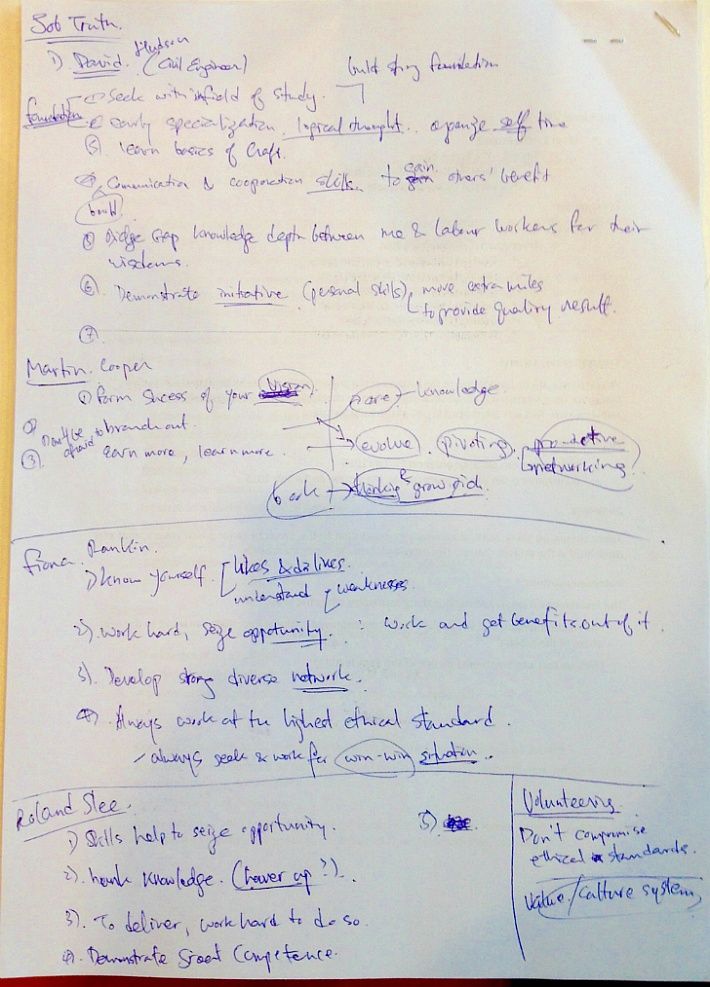 Job Truth.
1) David Hudson (Civil Engineer)
build strong foundation
foundation
seek within field of study.
early specialization, logical thought. organize self time
learn basics of craft.
Communication & cooperation skills. to gain others' benefit
build
Bridge gap knowledge depth between me & labour workers for their
wisdoms.
⑥ Demonstrate initiative (personal skills), more extra miles
to provide quality result.
⑦
Martin Cooper
① Form Sucess of your vision
core - knowledge
② Don't be afraid to branch out.
③ earn more, learn more.
evolve. pivoting. proactive
networking
thinking & grow rich.
Fiona Rankin.
1) know yourself. likes & dislikes.
understand weaknesses
2). work hard, seize oppotunity. : work and get benefits out of it.
3). Develop strong diverse network.
4). Always work at the highest ethical standard.
always seek & work for win-win situation.
Roland Slee.
1) Skills help to seize opportunity.
2). knowledge. (hover up?).
3). To deliver, work hard to do so.
4). Demonstrate great Competence.
5)
Volunteering
Don't compromise
ethical standards.
Value/culture system,